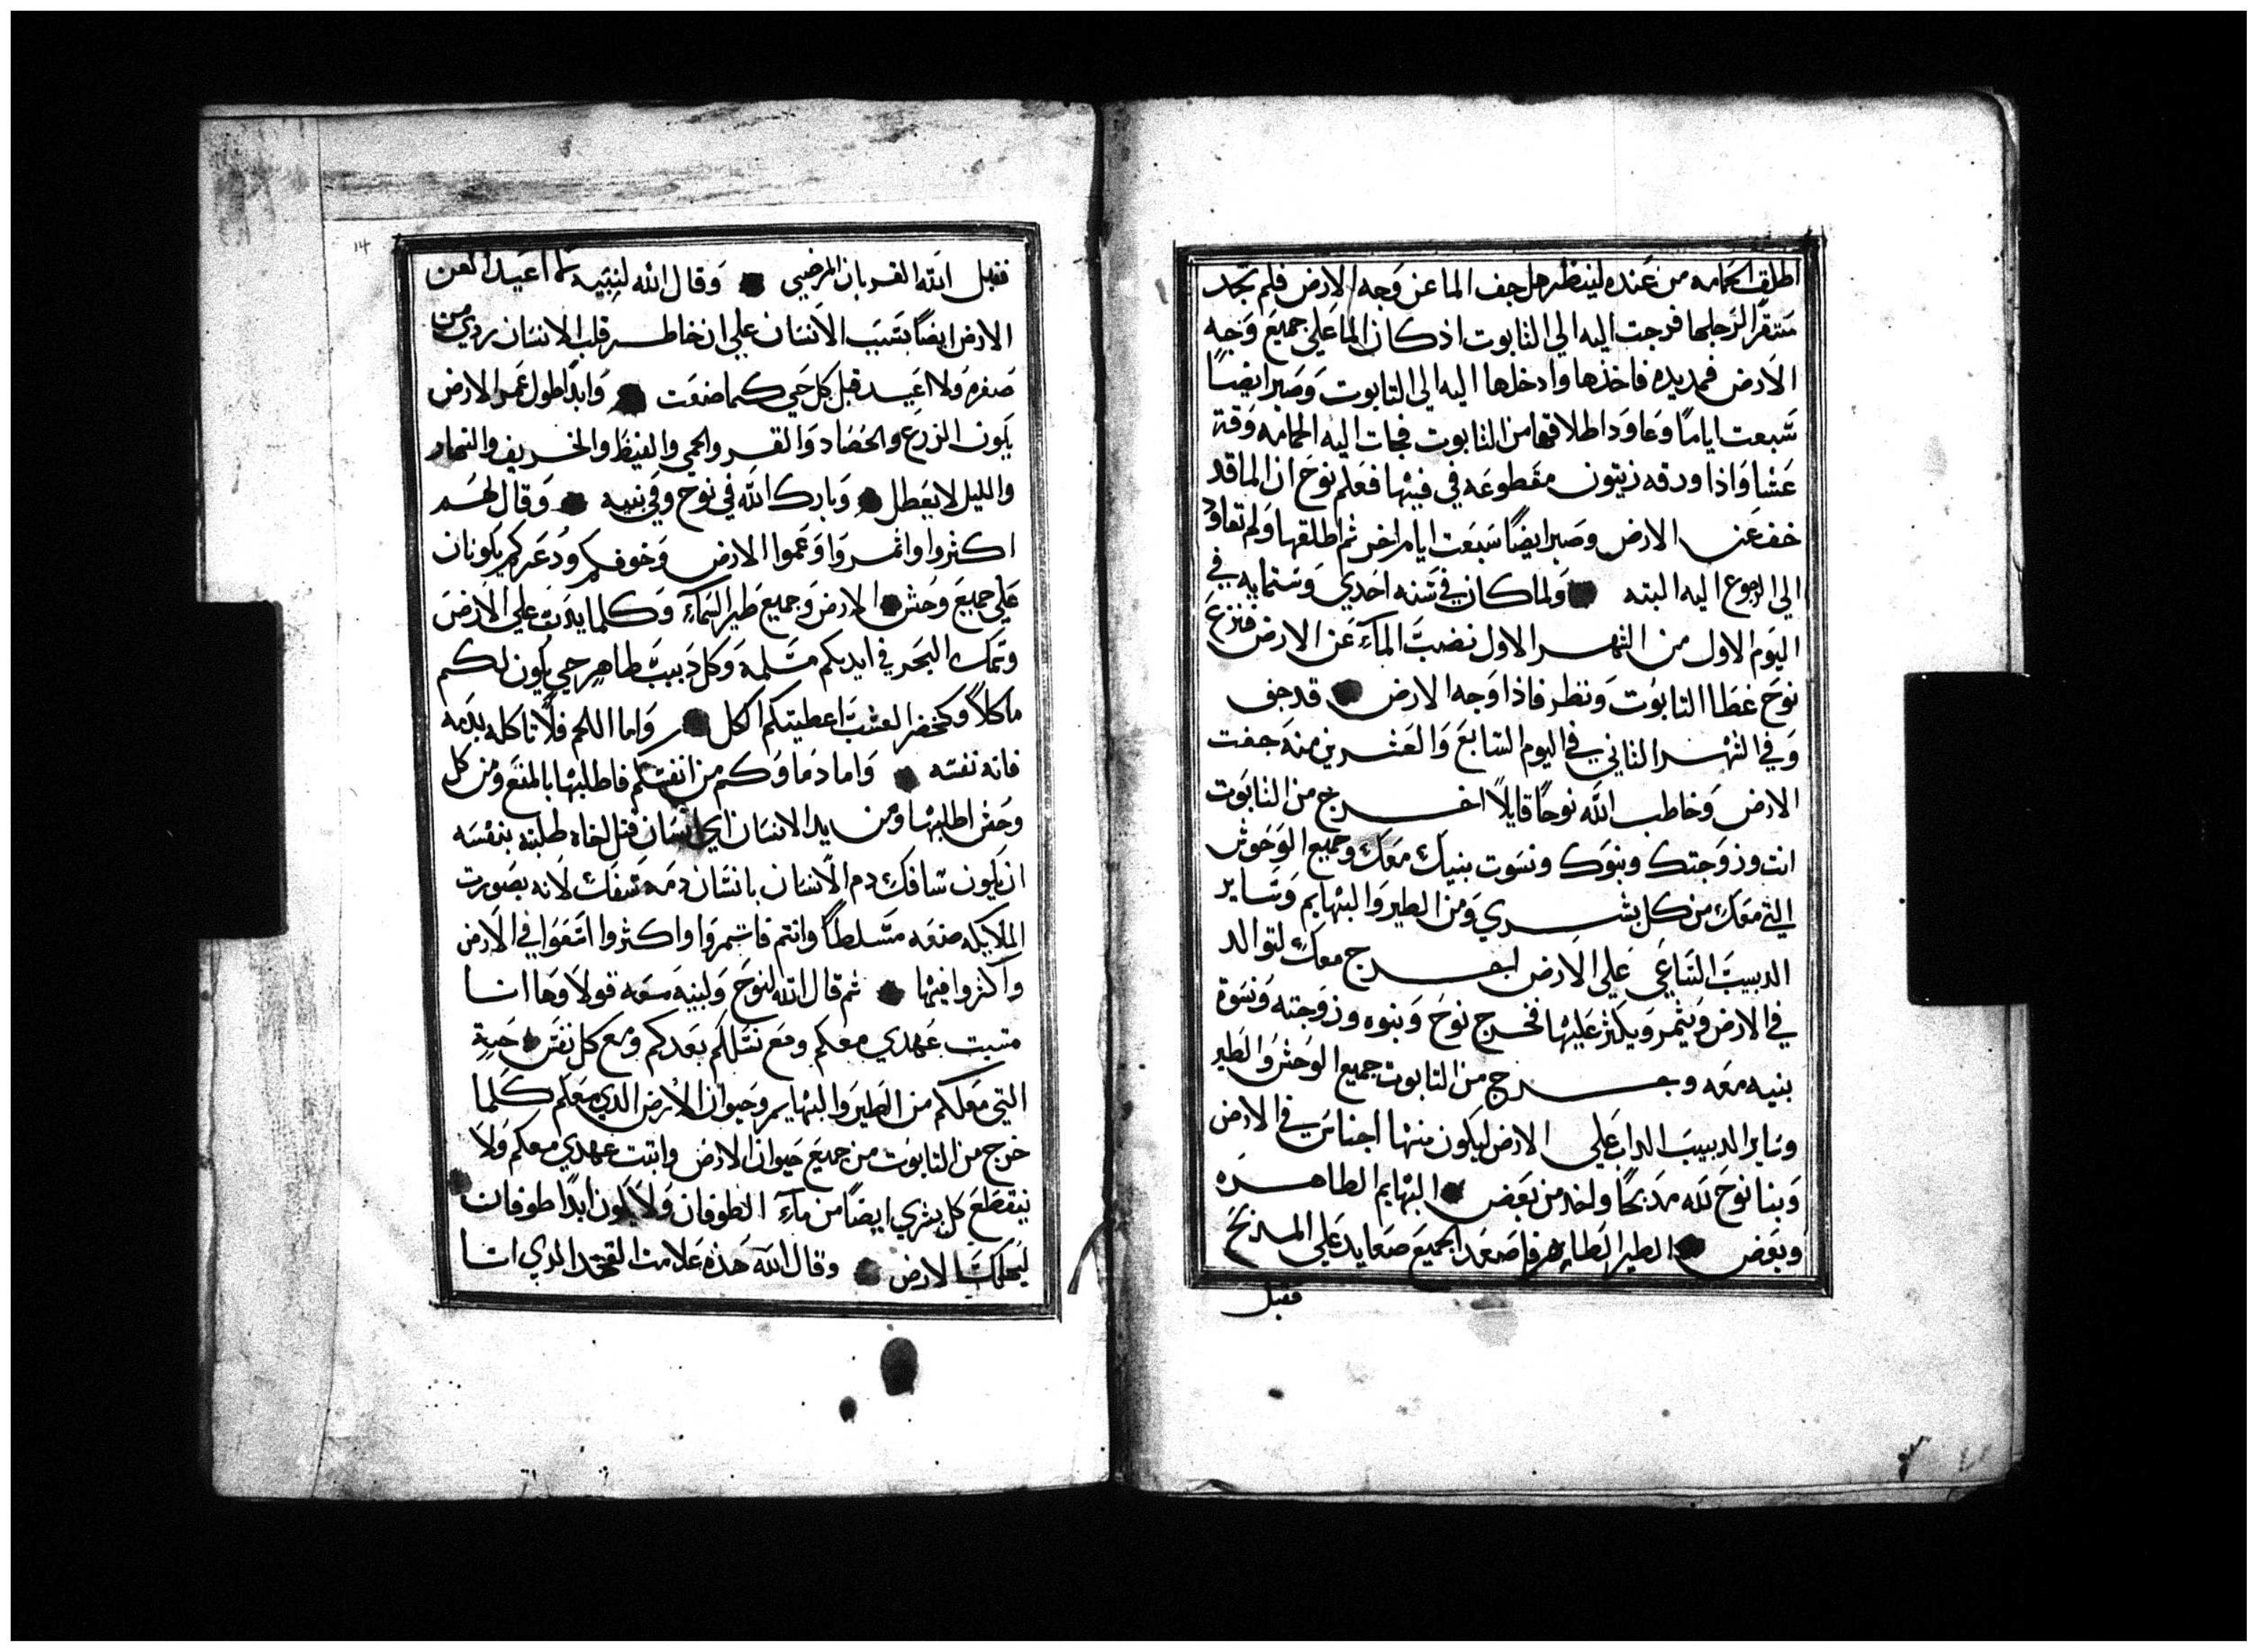 اطلق الحمامه من عنده لينظر هل جف الما عن وجه الارض فلم تجد
مستقرا لرجلها فرجت اليه الي التابوت اذ كان الما علي جميع وجه
الارض فمد يده فاخذها وادخلها اليه الي التابوت وصبر ايضا
سبعت اياما وعاود اطلاقها من التابوت فجات اليه الحمامه وقت
عشا واذا ورقه زيتون مقطوعه في فيها فعلم نوح ان الما قد
خف عن الارض وصبر ايضا سبعت ايام اخر ثم اطلقها ولم تعاود
الي الرجوع اليه البته ولما كان في سنه احدي وستمايه في
اليوم الاول من الشهر الاول نضب الماء عن الارض فنزع
نوح غطا التابوت ونظر فاذا وجه الارض قد جف
وفي الشهر الثاني في اليوم السابع والعشرين منه جفت
الارض وخاطب الله نوحا قايلا اخرج من التابوت
انت وزوجتك وبنوك ونسوت بنيك معك وجميع الوحوش
التي معك من كل بشري ومن الطير والبهايم وساير
الدبيب الساعي علي الارض اخرج معك لتوالد
في الارض ويثمر ويكثر عليها فخرج نوح وبنوه وزوجته ونسوة
بنيه معه وخرج من التابوت جميع الوحش والطير
وساير الدبيب الداب علي الارض ليكون منها اجناس في الارض
وبنا نوح لله مدبحا واخد من بعض البهايم الطاهره
وبعض الطير الطاهر فاصعد الجميع صعايد علي المدبح
فقبل
14
فقبل الله القربان المرضي وقال الله لنبيه لا اعيد العن
الارض ايضا بسبب الانسان علي ان خاطر قلب الانسان ردي من
صغره ولا اعيد قبل كل حي كما صنعت وابدا طول عمر الارض
يكون الزرع والحصاد والقر والحمي والقيظ والخريف والنهار
والليل لا يعطل وبارك الله في نوح وفي بنيه وقال لهم
اكثروا واثمروا وعموا الارض وخوفكم ودعركم يكونان
علي جميع وحش الارض وجميع طير السماء وكلما يدب علي الارض
وسمك البحر في ايديكم مسلمه وكل دبيب طاهر حي يكون لكم
ماكلا وكخضر العشب اعطيتكم الكل واما اللحم فلا تاكله بدمه
فانه نفسه واما دماوكم من انفسكم فاطلبها بالمنع ومن كل
وحش اطلبها ومن يد الانسان اي انسان قتل اخاه طلبته بنفسه
ان يكون سافك دم الانسان بانسان دمه سفك لانه بصورت
الملايكه صنعه مسلطا وانتم فاثمروا واكثروا اسعوا في الارض
واكثروا فيها ثم قال الله لنوح ولبنيه معه قولا وها انا
مثبت عهدي معكم ومع نسلكم بعدكم ومع كل نفس حية
التي معكم من الطير والبهايم وحيوان الارض الدي معكم كلما
خرج من التابوت من جميع حيوان الارض واثبت عهدي معكم ولا
ينقطع كل بشري ايضا من ماء الطوفان ولا يكون ابدا طوفان
ليهلك الارض وقال الله هذه علامت العهد الدي انا